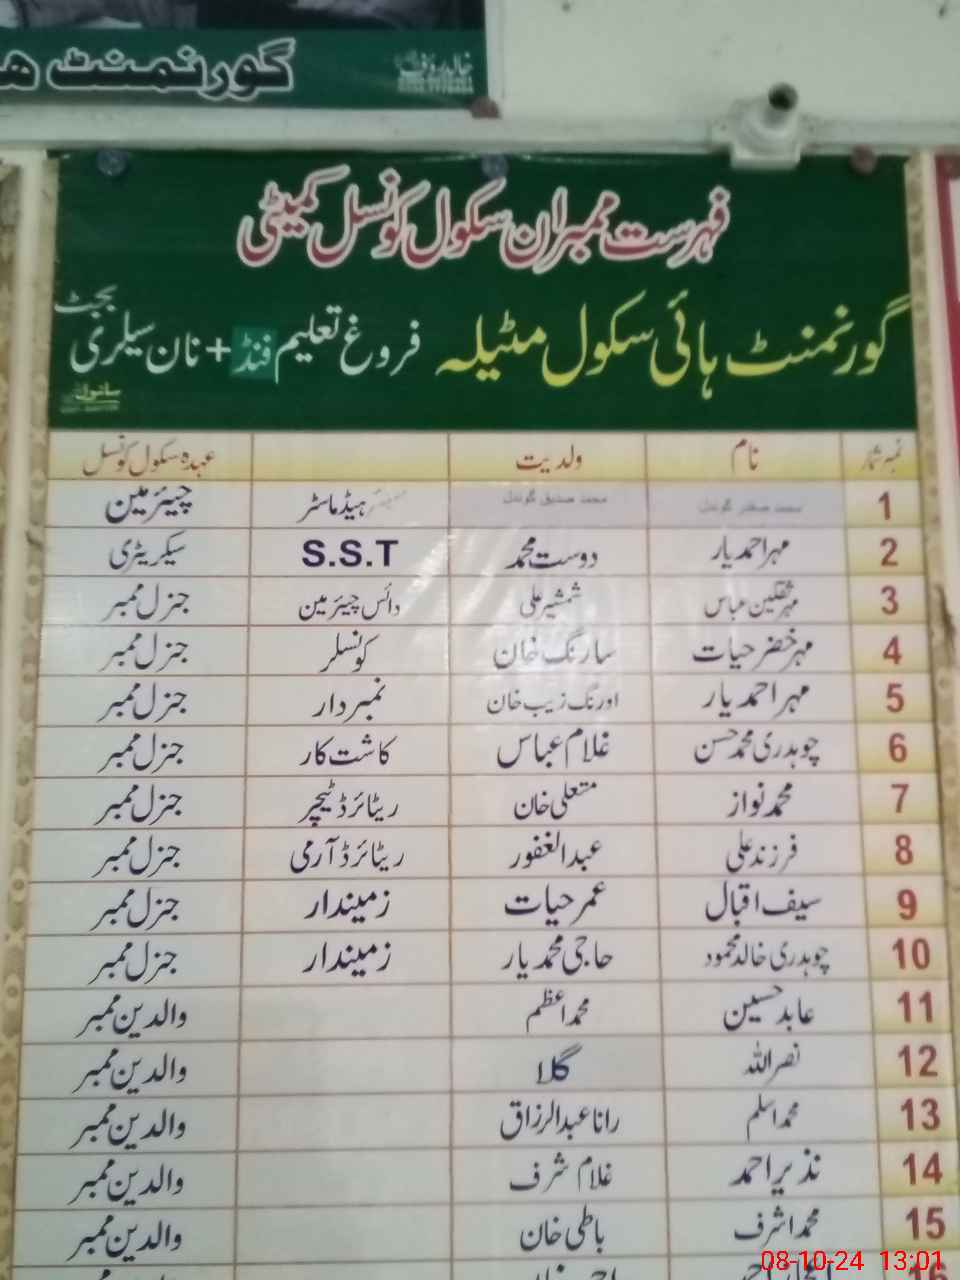 گورنمنٹ
فہرست ممبران سکول کونسل کمیٹی
گورنمنٹ ہائی سکول مٹیلہ فروغ تعلیم فنڈ + نان سیلری بجٹ
نمبر شمار نام ولدیت عہدہ سکول کونسل
1 محمد صفدر گوندل محمد صدیق گوندل ہیڈ ماسٹر چیئرمین
2 مہر احمد یار دوست محمد S.S.T سیکریٹری
3 مہر ثقلین عباس شمشیر علی وائس چیئرمین جنرل ممبر
4 مہر خضر حیات سارنگ خان کونسلر جنرل ممبر
5 مہر احمد یار اورنگ زیب خان نمبردار جنرل ممبر
6 چوہدری محمد حسن غلام عباس کاشت کار جنرل ممبر
7 محمد نواز متعلی خان ریٹائرڈ ٹیچر جنرل ممبر
8 فرزند علی عبدالغفور ریٹائرڈ آرمی جنرل ممبر
9 سیف اقبال عمر حیات زمیندار جنرل ممبر
10 چوہدری خالد محمود حاجی محمد یار زمیندار جنرل ممبر
11 عابد حسین محمد اعظم والدین ممبر
12 نصر اللہ گلا والدین ممبر
13 محمد اسلم رانا عبدالرزاق والدین ممبر
14 نذیر احمد غلام شرف والدین ممبر
15 محمد اشرف باطی خان والدین ممبر
16
08-10-24 13:01